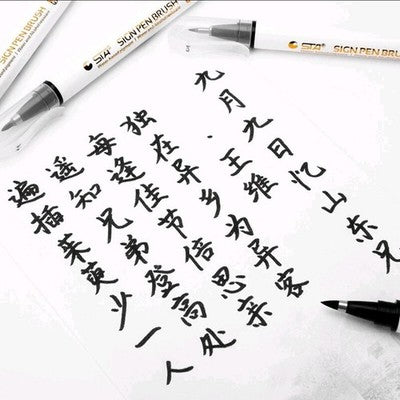 SIGN PEN BRUSH
STA SIGN PEN BRUSH
STA SIGN PEN BRUSH
九月九日忆山东兄
·王维
独在异乡为异客
每逢佳节倍思亲
遥知兄弟登高处
遍插茱萸少一人